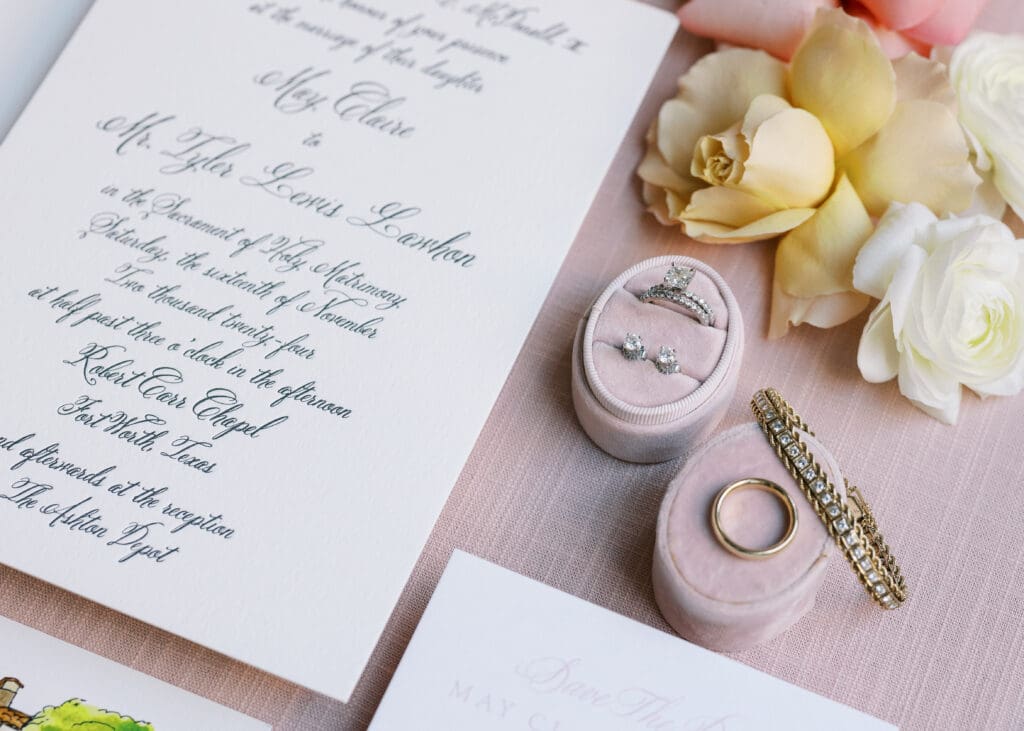 McDonald, II
honour of your presence
at the marriage of their daughter
May Claire
to
Mr. Tyler Lewis Lawhon
in the Sacrament of Holy Matrimony
Saturday, the sixteenth of November
Two thousand twenty-four
at half past three o'clock in the afternoon
Robert Carr Chapel
Fort Worth, Texas
afterwards at the reception
The Ashton Depot
Save The
MAY